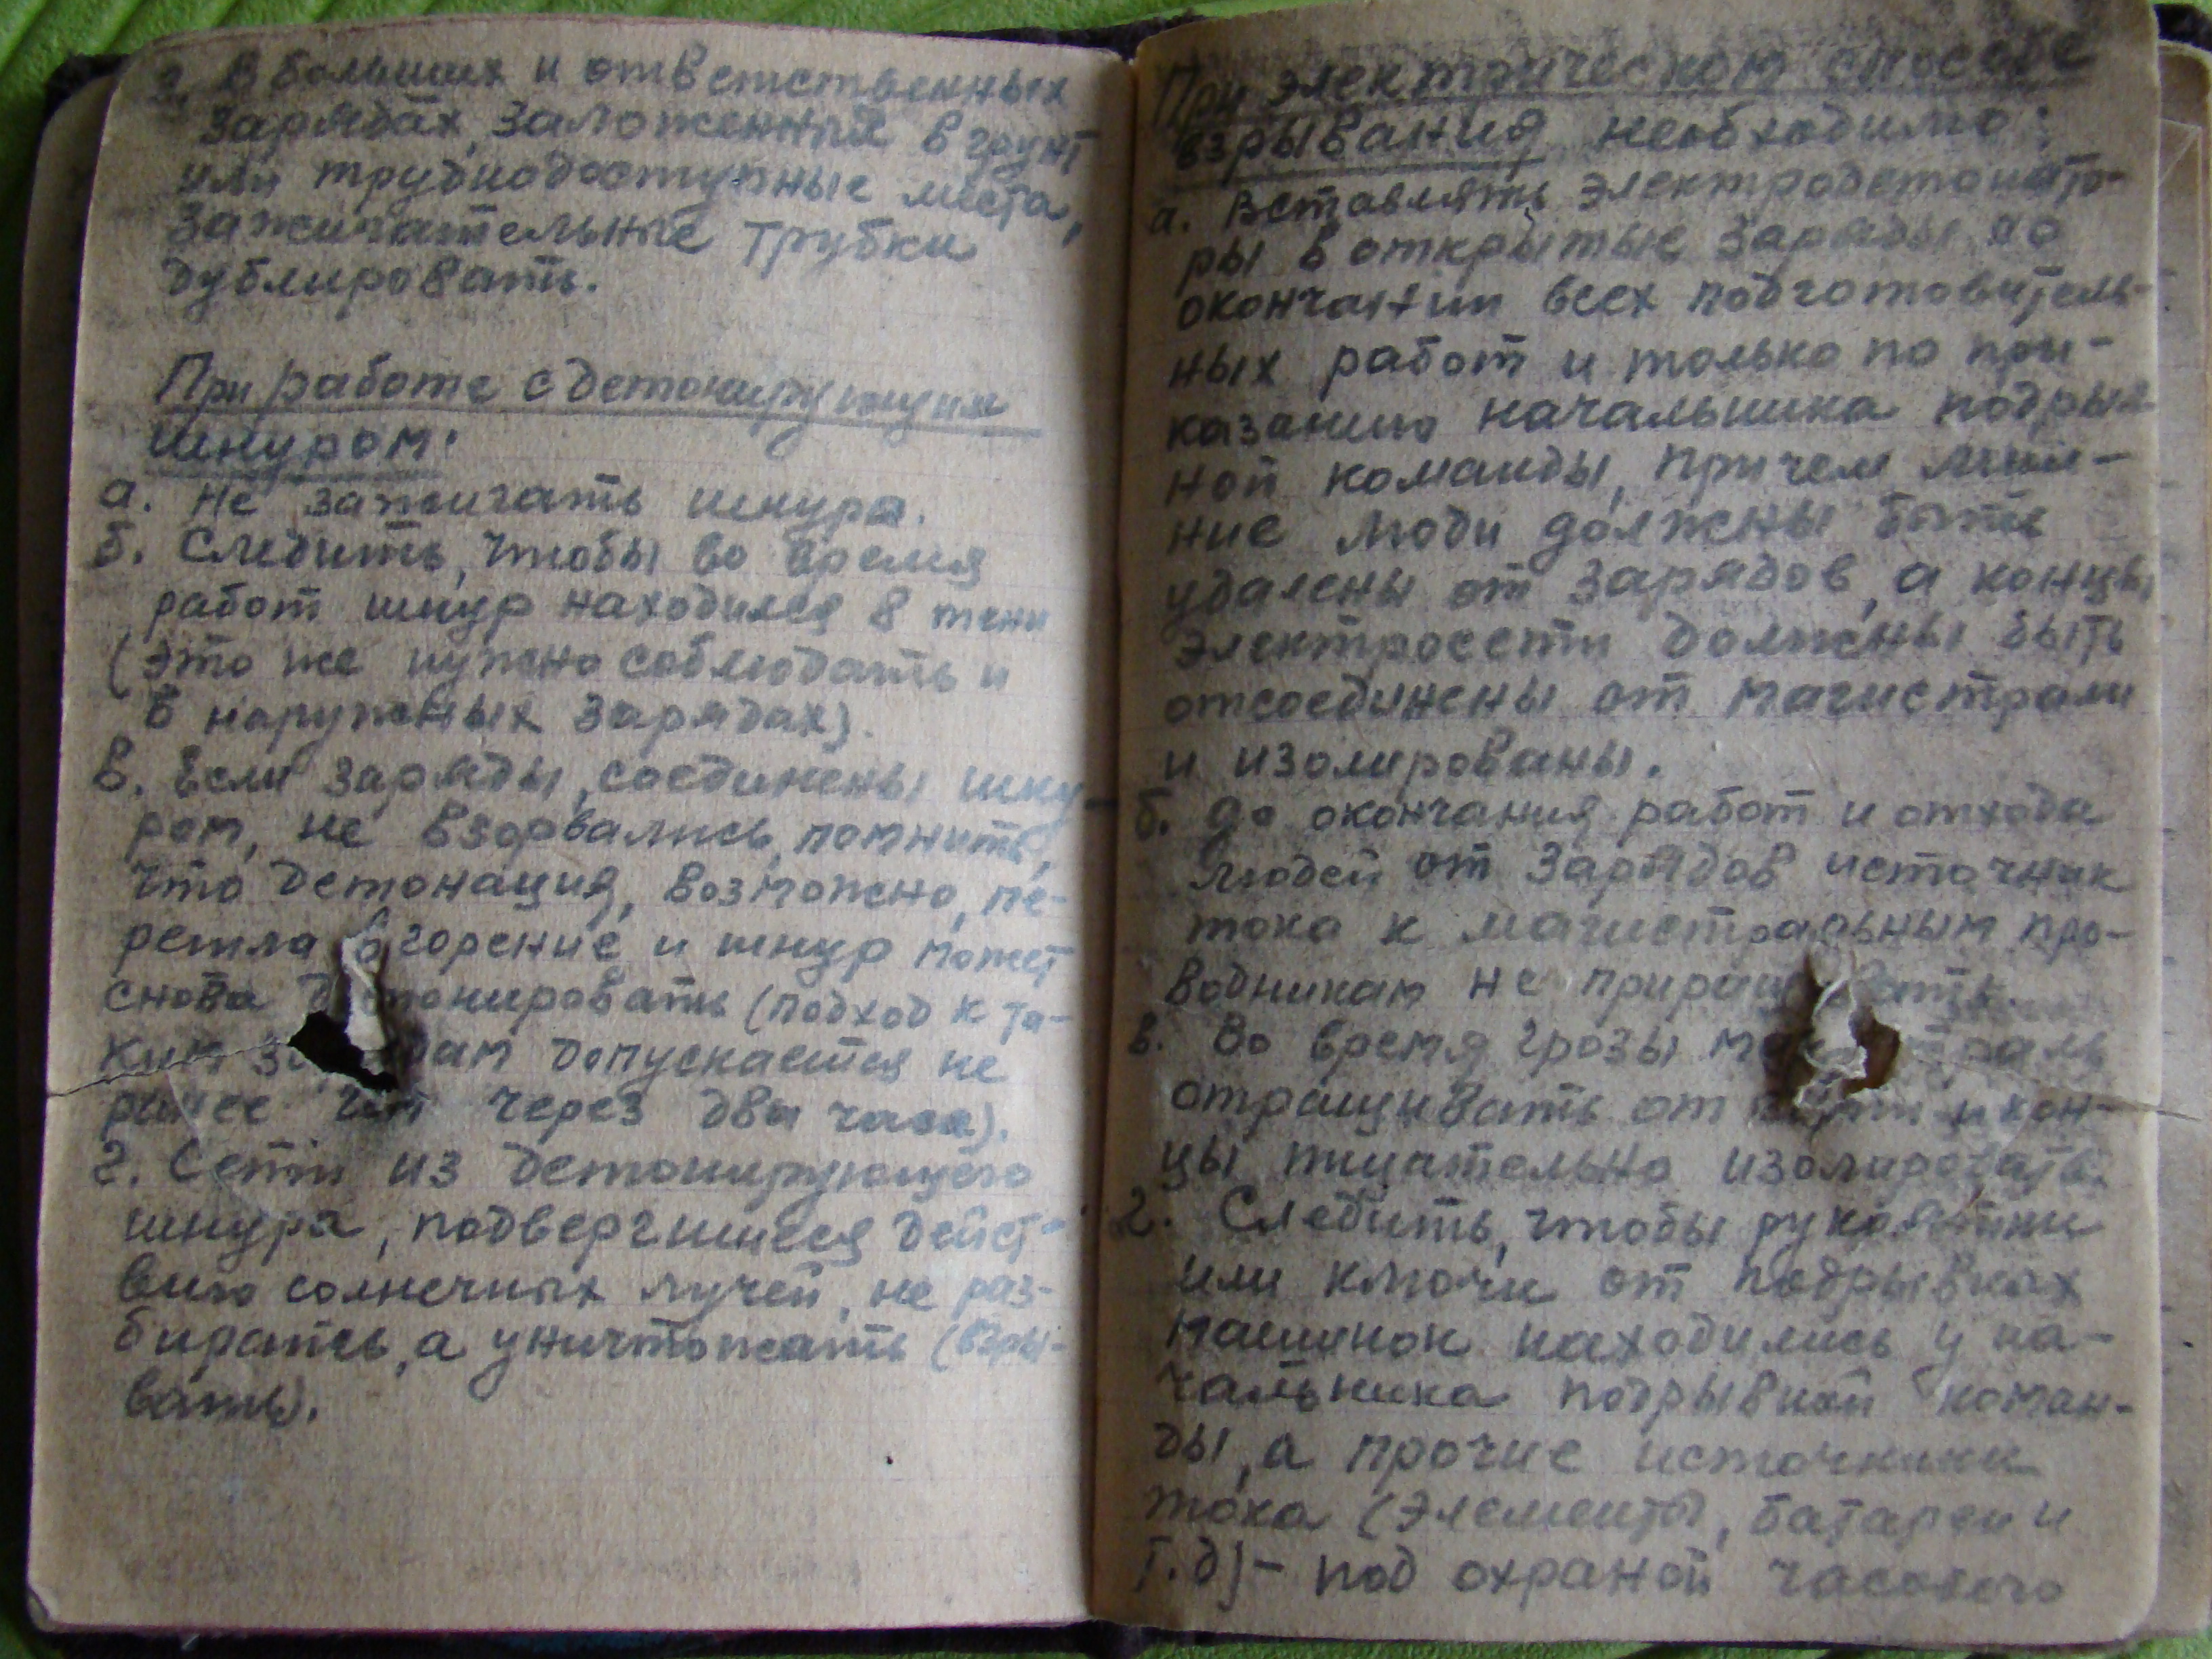 з. В больших и ответственных
зарядах, заложенных в грунт
или труднодоступные места,
зажигательные трубки
дублировать.
При работе с детонирующим
шнуром:
а. не зажигать шнура.
б. Следить, чтобы во время
работ шнур находился в тени
(это же нужно соблюдать и
в наружных зарядах).
в. Если заряды, соединены шну-
ром, не взорвались, помнить,
что детонация, возможно, пе-
решла в горение и шнур может
снова детонировать (подход к та-
ким зарядам допускается не
ранее чем через два часа).
г. Сети из детонирующего
шнура, подвергшиеся дейст-
вию солнечных лучей, не раз-
бирать, а уничтожать (взры-
вать).
При электрическом способе
взрывания необходимо:
а. Вставлять электродетонато-
ры в открытые заряды по
окончании всех подготовитель-
ных работ и только по при-
казанию начальника подрыв
ной команды, причем лиш-
ние люди должны быть
удалены от зарядов, а концы
электросети должны быть
отсоединены от магистрали
и изолированы.
б. до окончания работ и отхода
людей от зарядов источник
тока к магистральным про-
водникам не приращивать.
в. Во время грозы магистраль
отращивать от сети и кон-
цы тщательно изолировать.
г. Следить, чтобы рукоятки
или ключи от подрывных
машинок находились у на-
чальника подрывной коман-
ды, а прочие источники
тока (элементы, батареи и
т.д) - под охраной часового